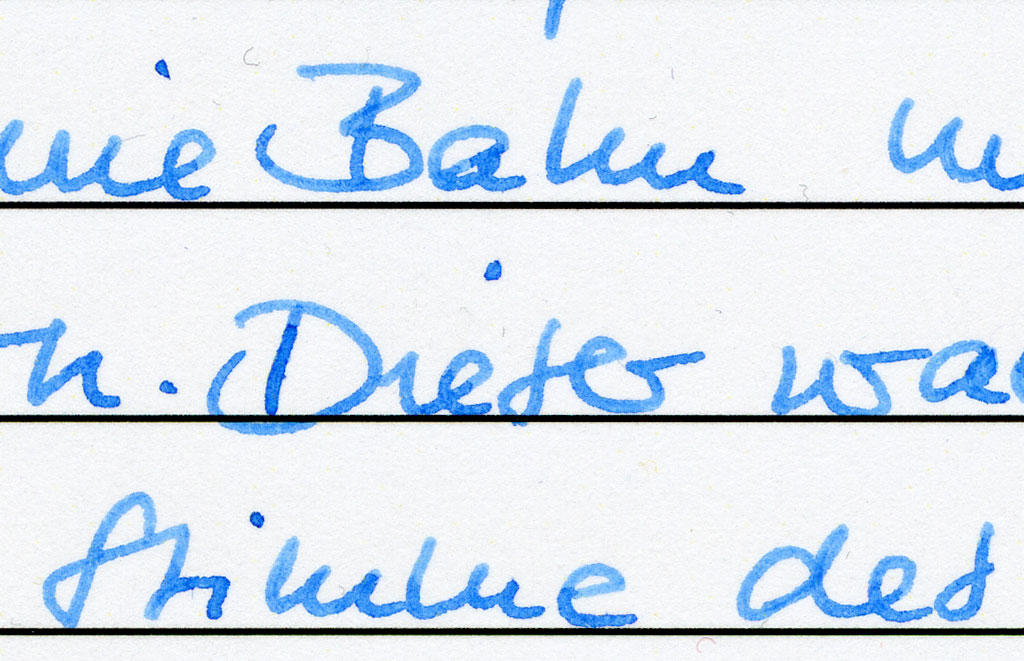 nie Bahn
n. Dieser wa
Stimme des